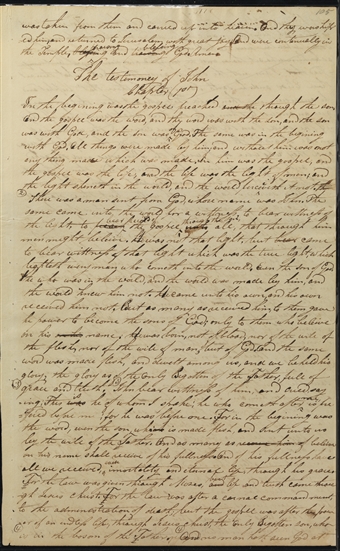 105
was taken from them and carried up into heaven. And they worshiped
him, and returned to Jerusalem with great joy and were continually in
the Temple, praising and blessing God. Amen
The testimony of John
Chapter 1st
In the beginning was the gospel preached through the son
And the gospel was the word, and the word was with the son, and the son
was with God, and the son was of God. The same was in the begining
with God. All things were made by him and without him was not
any thing made which was made. In him was the gospel, and
the gospel was the life, and the life was the light of men; and
the light shineth in the world and the world
There was a man sent from God, whose name was John. The
same came into the world for a witness, to bear witness of
the light, to bear the gospel unto all, that through him
men might believe. He was not that light, but came
to bear witness of that light which was the true light, which
lighteth every man who cometh into the world, even the son of God
he who was in the world and the world was made by him, and
the world knew him not. He came unto his own, and his own
received him not. But as many as received him to them gave
he power to become the sons of God; only to them who believe
on his name; He was born, not of blood, nor of the will of
the flesh, nor of the will of man, but of God. And the same
word was made flesh, and dwelt among us, and we beheld his
glory, the glory as of the only Begotten of the Father, full of
grace and truth. John bear witness of him, and cried saying,
This was he of whom I spake; he who cometh after me is
prefered before me. For he was before me. For in the beginning was
the word, even the son who is made flesh, and sent unto us
by the will of the Father. And as many as believe
on his name shall receive of his fulness. And of his fulness have
all we received, even immortality and eternal life through his grace
For the law was given through Moses, but life and truth came through
Jesus Christ. For the law was after a carnal commandment
to the administration of death; but the gospel was after the power
of an endless life, through Jesus Christ the Only Begotten son, who
is in the bosom of the Father. And no man hath seen God at